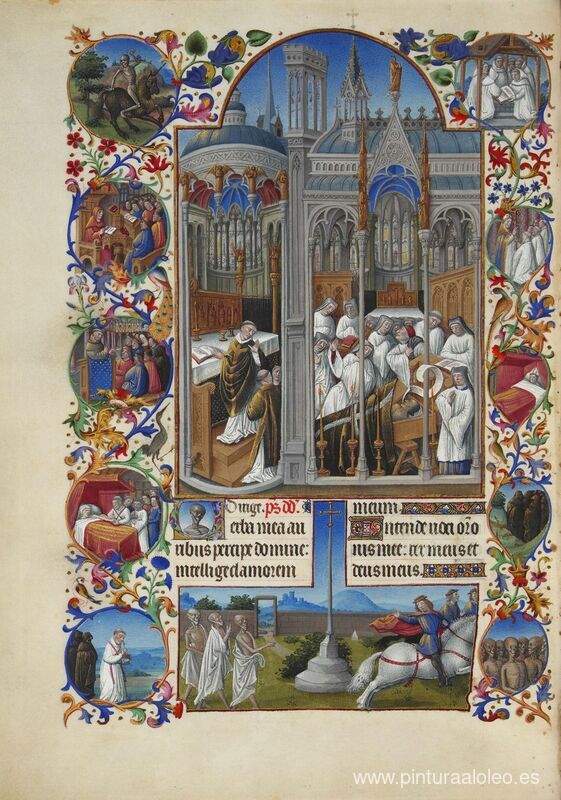 Dirige. ps. dd.
Verba mea au
ribus percipe domine:
intellige clamorem
meum.
Intende voci orõ
nis mee: rex meus et
deus meus.
www.pinturaaloleo.es